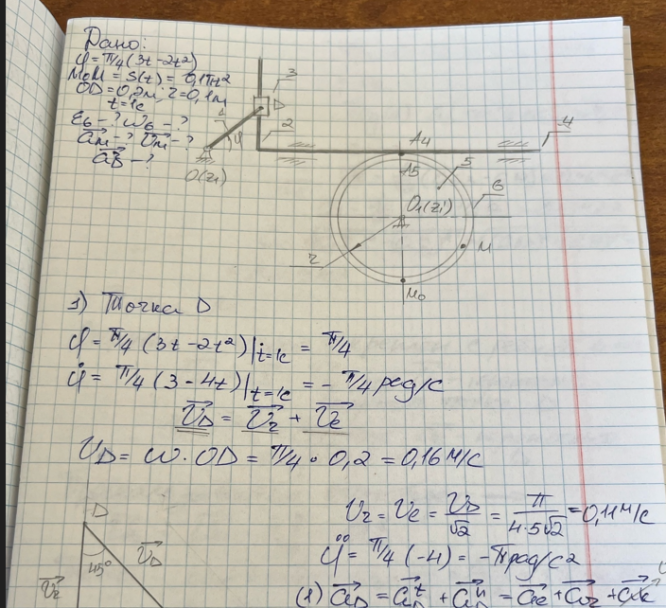 Дано:
φ = π/4 (3t-2t²)
M₀M = S(t) = 0,1πt²
OD = 0,2м; r = 0,1м
t = 1c
ε₆ - ? ω₆ - ?
a⃗м - ? v⃗м - ?
a⃗D - ?
3
D
1
φ
2
O(z₁)
4
A₄
A₅
5
6
O₁(z₁)
r
M
M₀
1) Точка D
φ = π/4 (3t-2t²)|t=1c = π/4
φ̇ = π/4 (3-4t)|t=1c = - π/4 рад/с
v⃗D = v⃗r + v⃗e
vD = ω·OD = π/4 · 0,2 = 0,16 м/с
vr = ve = vD/√2 = π/(4·5√2) = 0,11 м/с
φ̈ = π/4 (-4) = -π рад/с²
(1) a⃗D = a⃗Dᵗ + a⃗Dⁿ = a⃗e + a⃗r + a⃗k
D
45°
v⃗D
v⃗r